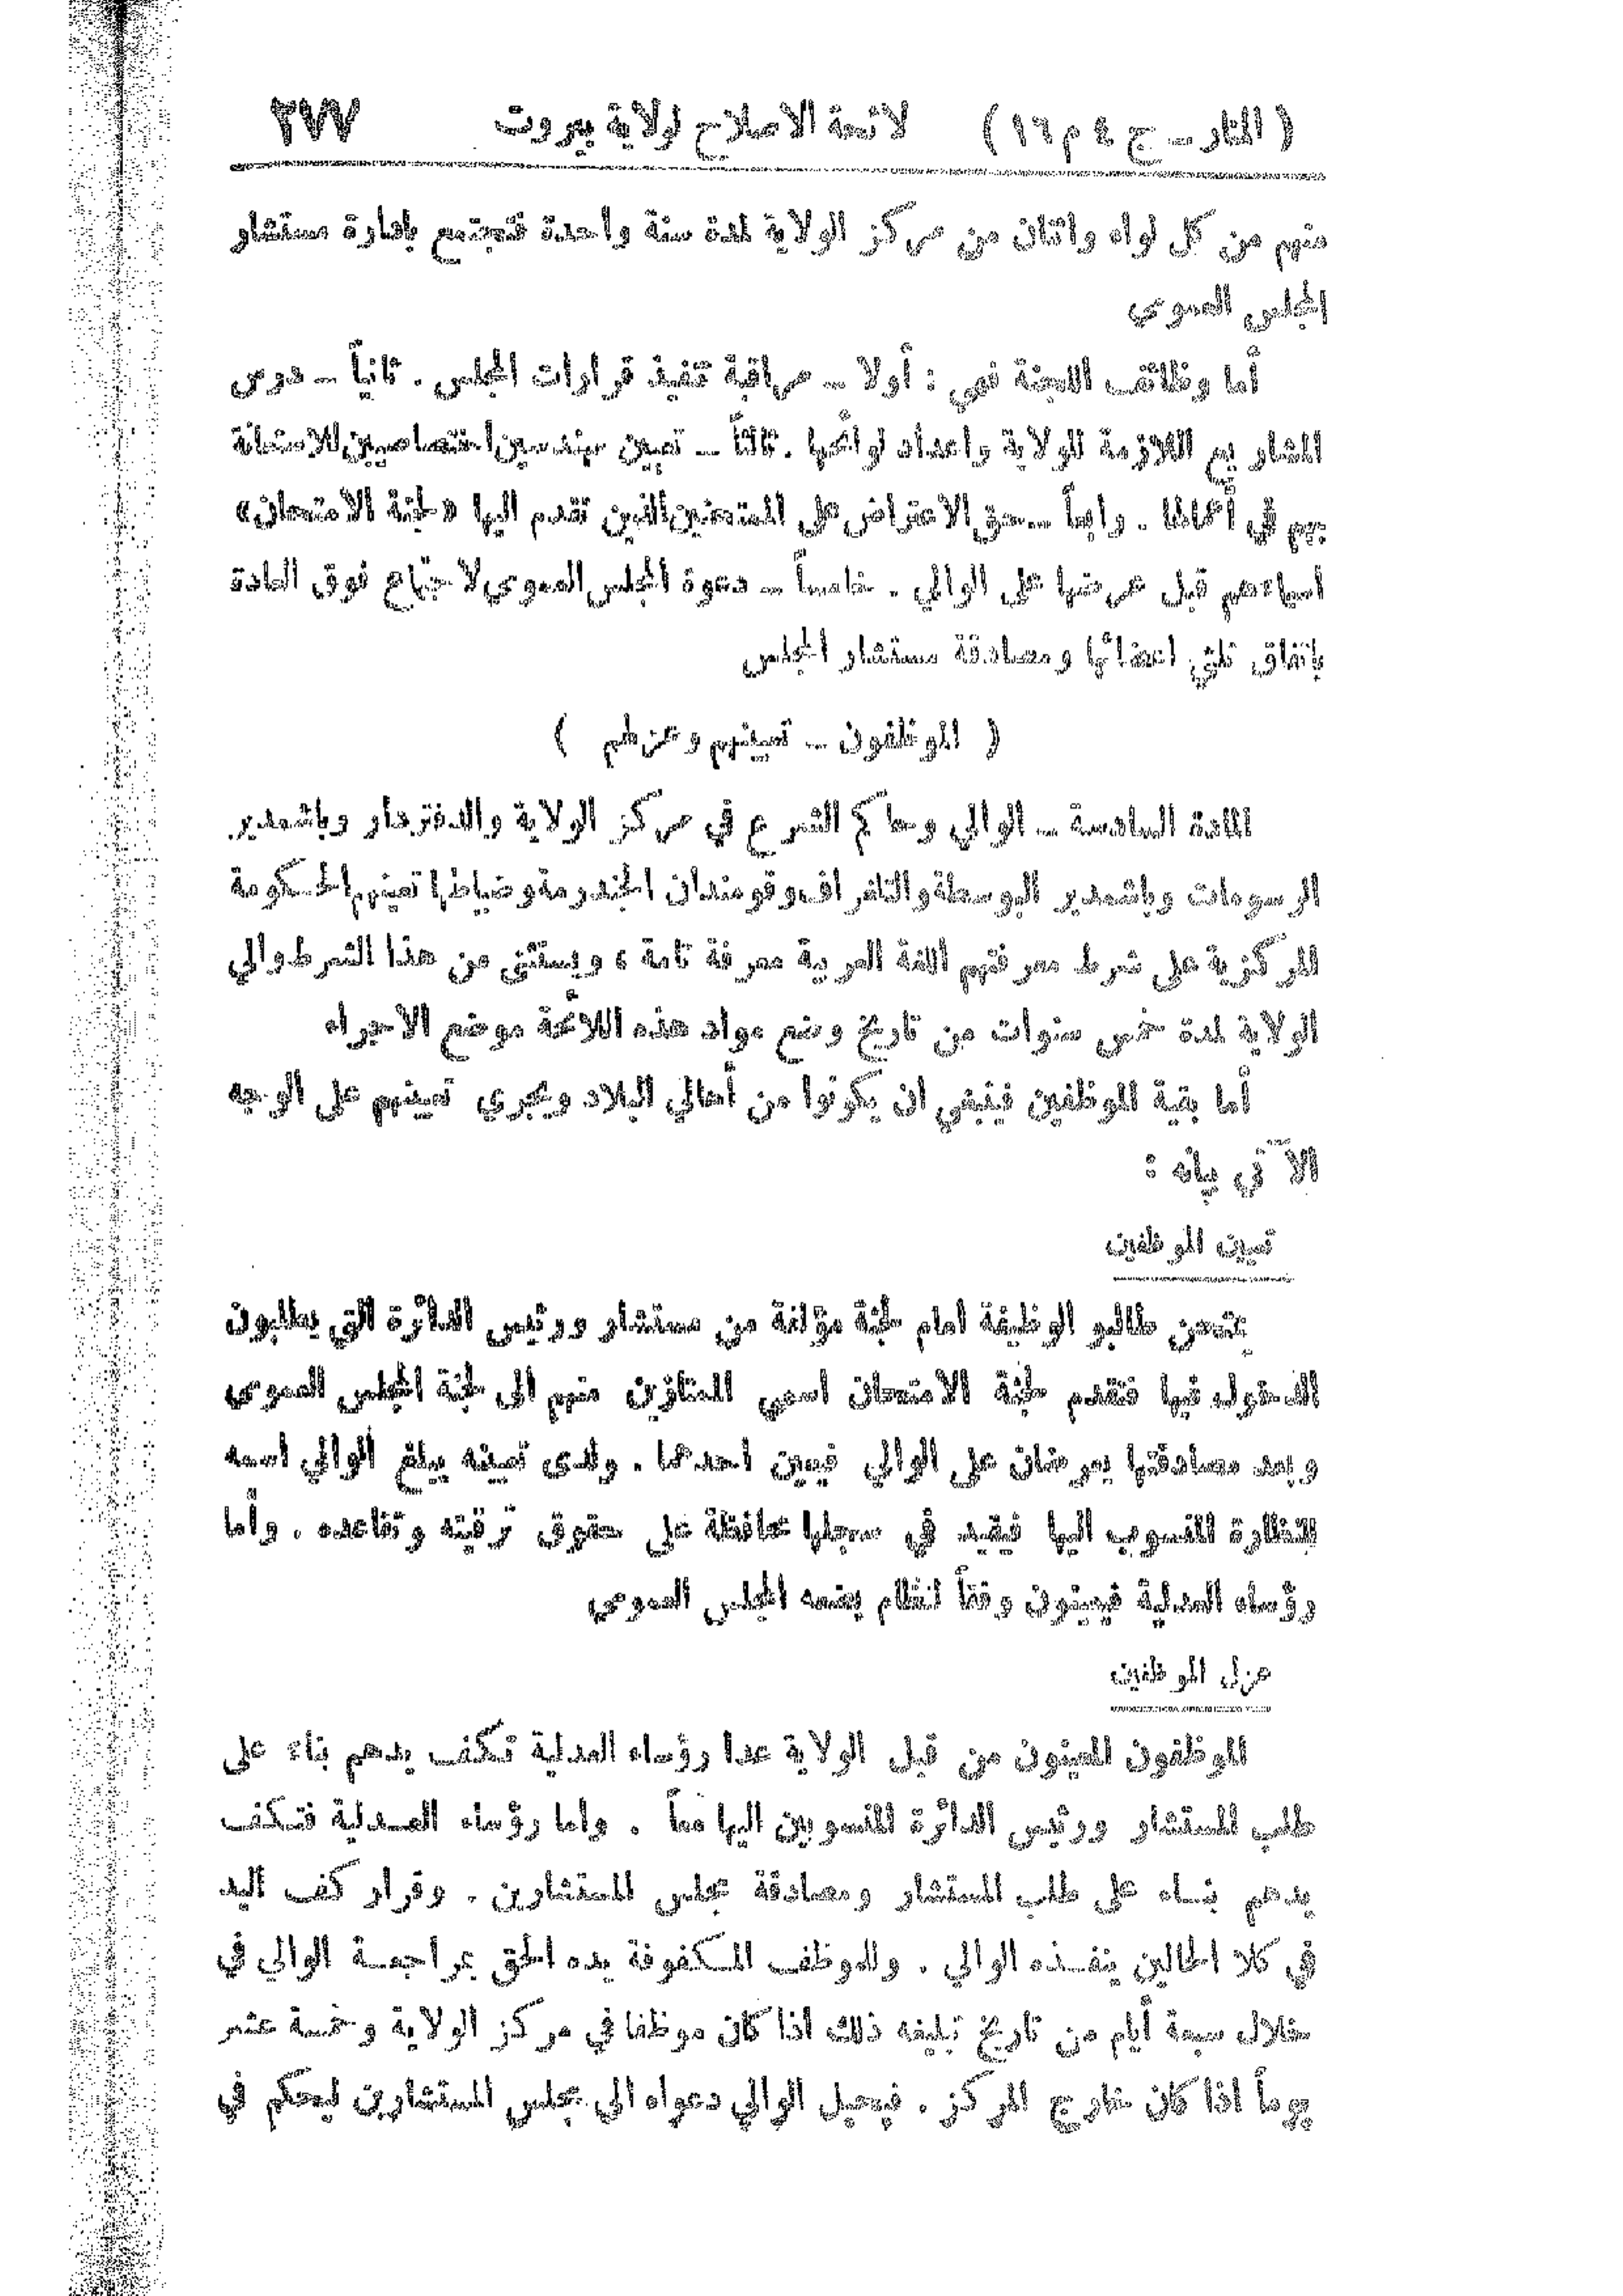 ( المنار – ج ٤ م ١٦ ) لائحة الاصلاح لولاية بيروت ٢٧٧
منهم من كل لواء واثنان من مركز الولاية لمدة سنة واحدة فتجتمع بادارة مستشار
المجلس العمومي
أما وظائف اللجنة فهي : أولا – مراقبة تنفيذ قرارات المجلس . ثانياً – درس
المشاريع اللازمة للولاية واعداد لوائحها . ثالثاً – تعيين مهندسين اختصاصيين للاستعانة
بهم في أعمالها . رابعاً – حق الاعتراض على الممتحنين الذين تقدم اليها « لجنة الامتحان »
اسماءهم قبل عرضها على الوالي . خامساً – دعوة المجلس العمومي لاجتماع فوق العادة
باتفاق ثلثي اعضائها ومصادقة مستشار المجلس
( الموظفون – تعيينهم وعزلهم )
المادة السادسة – الوالي وحاكم الشرع في مركز الولاية والدفتردار وباشمدير
الرسومات وباشمدير البوسطة والتلغراف وقومندان الجندرمة وضباطها تعينهم الحكومة
المركزية على شرط معرفتهم اللغة العربية معرفة تامة ، ويستثنى من هذا الشرط والي
الولاية لمدة خمس سنوات من تاريخ وضع مواد هذه اللائحة موضع الاجراء
أما بقية الموظفين فينبغي ان يكونوا من أهالي البلاد ويجري تعيينهم على الوجه
الآتي بيانه :
تعيين الموظفين
يمتحن طالبو الوظيفة امام لجنة مؤلفة من مستشار ورئيس الدائرة التي يطلبون
الدخول فيها فتقدم لجنة الامتحان اسمي الممتازين منهم الى لجنة المجلس العمومي
وبعد مصادقتها يعرضان على الوالي فيعين احدهما . ولدى تعيينه يبلغ الوالي اسمه
للنظارة المنسوب اليها فيقيد في سجلها محافظة على حقوق ترقيته وتقاعده . وأما
رؤساء العدلية فيعينون وفقاً لنظام يضعه المجلس العمومي
عزل الموظفين
الموظفون المعينون من قبل الولاية عدا رؤساء العدلية تكف يدهم بناء على
طلب المستشار ورئيس الدائرة المنسوبين اليها معاً . واما رؤساء العدلية فتكف
يدهم بناء على طلب المستشار ومصادقة مجلس المستشارين . وقرار كف اليد
في كلا الحالين ينفذه الوالي . وللموظف المكفوفة يده الحق بمراجعة الوالي في
خلال سبعة أيام من تاريخ تبليغه ذلك اذا كان موظفا في مركز الولاية وخمسة عشر
يوماً اذا كان خارج المركز . فيحيل الوالي دعواه الى مجلس المستشارين ليحكم في